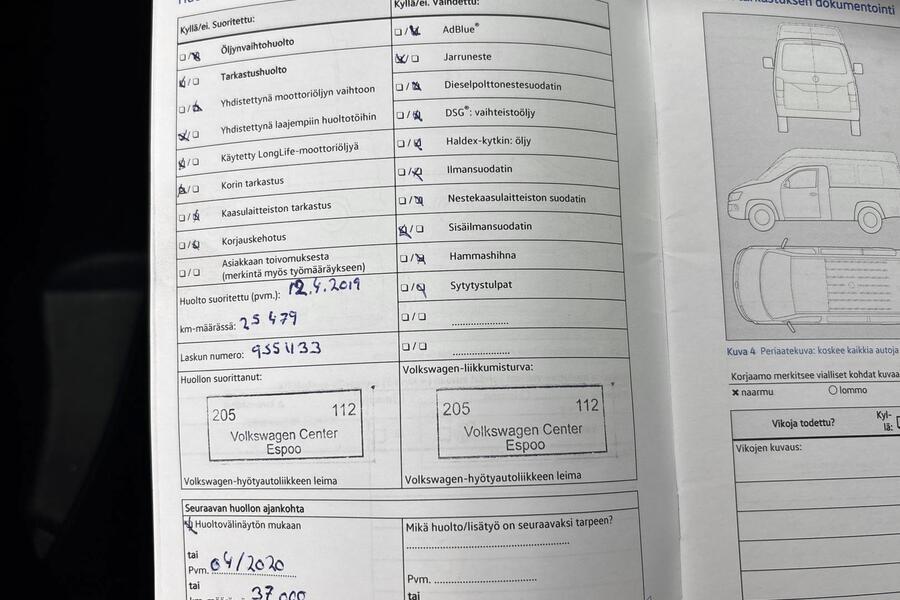 Kyllä/ei. Suoritettu:
Öljynvaihtohuolto
Tarkastushuolto
Yhdistettynä moottoriöljyn vaihtoon
Yhdistettynä laajempiin huoltotöihin
Käytetty LongLife-moottoriöljyä
Korin tarkastus
Kaasulaitteiston tarkastus
Korjauskehotus
Asiakkaan toivomuksesta
(merkintä myös työmääräykseen)
Huolto suoritettu (pvm.): 12.4.2019
km-määrässä: 25 479
Laskun numero: 9551133
Huollon suorittanut:
205 112
Volkswagen Center
Espoo
Volkswagen-hyötyautoliikkeen leima
Kyllä/ei. Vaihdettu:
AdBlue®
Jarruneste
Dieselpolttonestesuodatin
DSG®: vaihteistoöljy
Haldex-kytkin: öljy
Ilmansuodatin
Nestekaasulaitteiston suodatin
Sisäilmansuodatin
Hammashihna
Sytytystulpat
Volkswagen-liikkumisturva:
205 112
Volkswagen Center
Espoo
Volkswagen-hyötyautoliikkeen leima
Seuraavan huollon ajankohta
Huoltovälinäytön mukaan
tai
Pvm. 04/2020
tai
37 000
Mikä huolto/lisätyö on seuraavaksi tarpeen?
Pvm.
tai
dokumentointi
Kuva 4 Periaatekuva: koskee kaikkia autoja
Korjaamo merkitsee vialliset kohdat kuvaa
naarmu lommo
Vikoja todettu? Kyl-
lä:
Vikojen kuvaus: